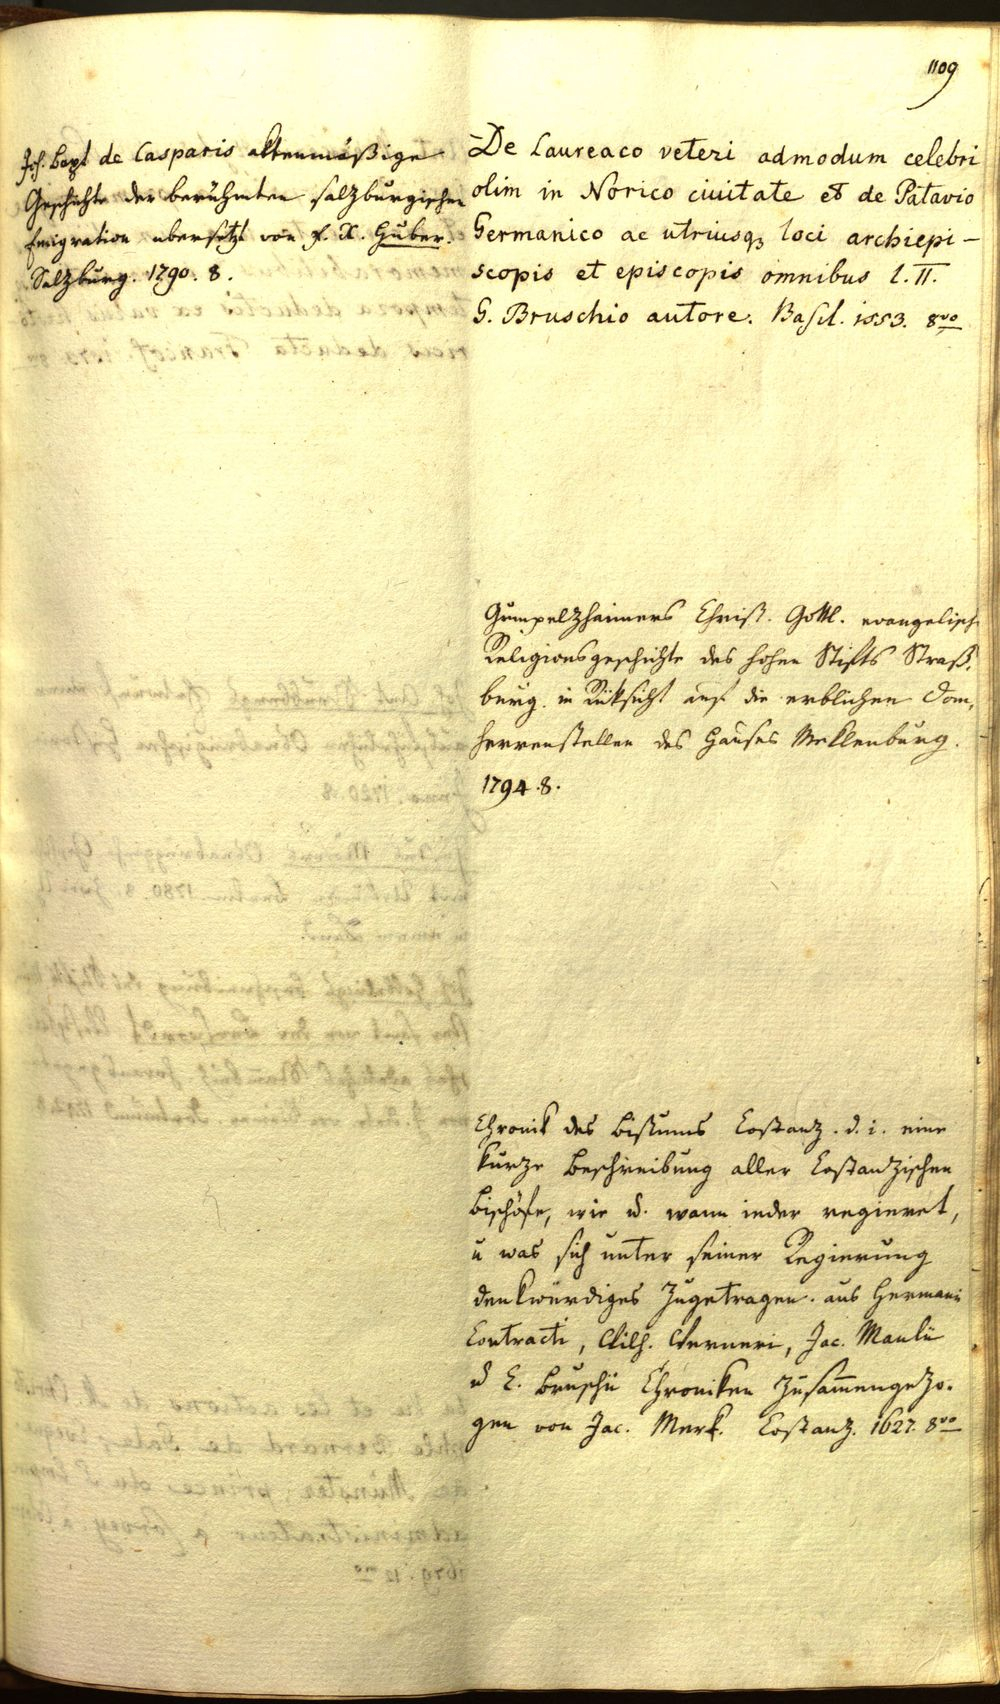 1109
Joh. Bapt de Casparis aktenmäßige
Geschichte der berühmten salzburgischen
Emigration übersetzt von F. X. Huber.
Salzburg. 1790. 8.
De Laureaco veteri admodum celebri
olim in Norico ciuitate et de Patavio
Germanico ac utriusq3 loci archiepi-
scopis et episcopis omnibus l. II.
G. Bruschio autore. Basil. 1553. 8vo
Gumpelzhaimers Christ. Gottl. evangelisch
Religionsgeschichte des hohen Stifts Straß,
burg in Rüksicht auf die erblichen Dom,
herrenstellen des Hauses Meklenburg.
1794. 8.
Chronik des Bistums Costanz. d. i. eine
kurze Beschreibung aller Costanzischen
Bischöfe, wie u. wann ieder regieret,
u was sich unter seiner Regierung
denkwürdiges Zugetragen. aus Hermani
Contracti, Wilh. Werneri, Jac. Manlii
u C. Bruschii Chroniken Zusammengezo-
gen von Jac. Merk. Costanz. 1627. 8vo